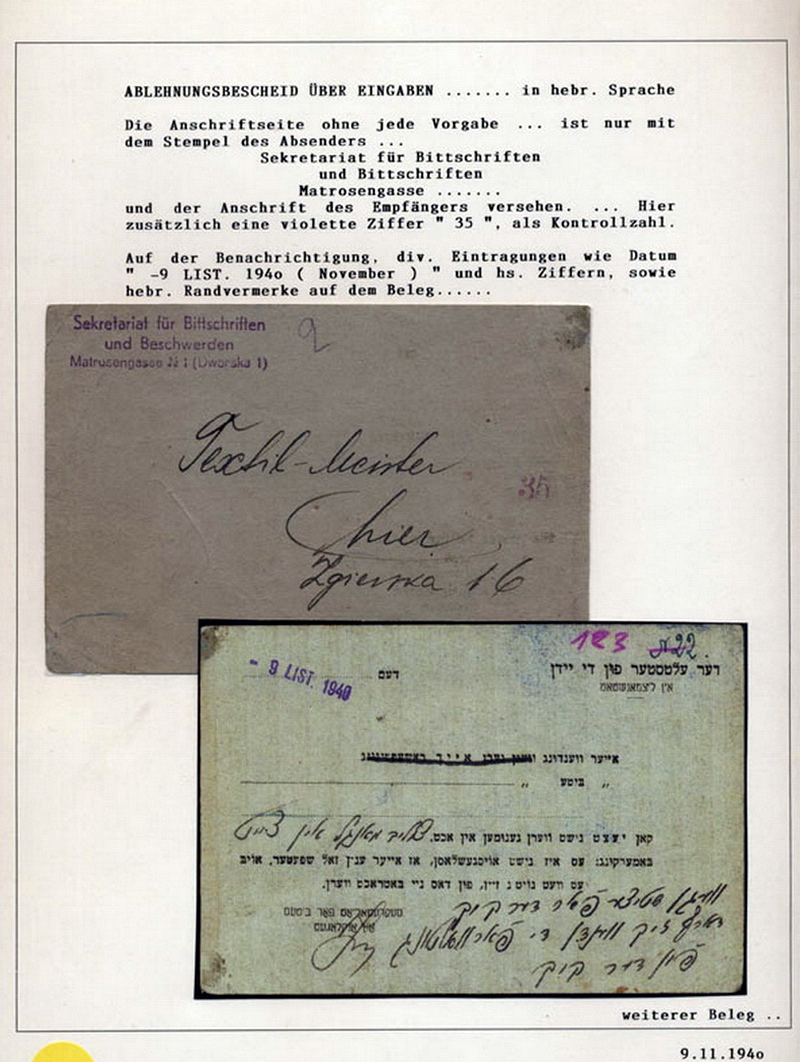 ABLEHNUNGSBESCHEID ÜBER EINGABEN ....... in hebr. Sprache
Die Anschriftseite ohne jede Vorgabe ... ist nur mit
dem Stempel des Absenders ...
Sekretariat für Bittschriften
und Bittschriften
Matrosengasse .......
und der Anschrift des Empfängers versehen. ... Hier
zusätzlich eine violette Ziffer " 35 ", als Kontrollzahl.
Auf der Benachrichtigung, div. Eintragungen wie Datum
" -9 LIST. 194o ( November ) " und hs. Ziffern, sowie
hebr. Randvermerke auf dem Beleg......
Sekretariat für Bittschriften
und Beschwerden
Matrosengasse № 1 (Dworska 1)
2
Textil-Meister
35
hier
Zgierska 16
123 № 22.
דער עלטסטער פון די יידן
אין ליצמאנשטאט
דעם
- 9 LIST. 1940
אייער ווענדונג
„ ביטע „
קאן יעצט נישט ווערן גענומען אין אכט.
באמערקונג: עס איז נישט אויסגעשלאסן, אז אייער ענין זאל שפעטער, אויב
עס וועט נויטיג זיין, פון דאס ניי באטראכט ווערן.
וועגן
דארף זיך ווענדן די
פון דער קיך
weiterer Beleg ..
9.11.194o